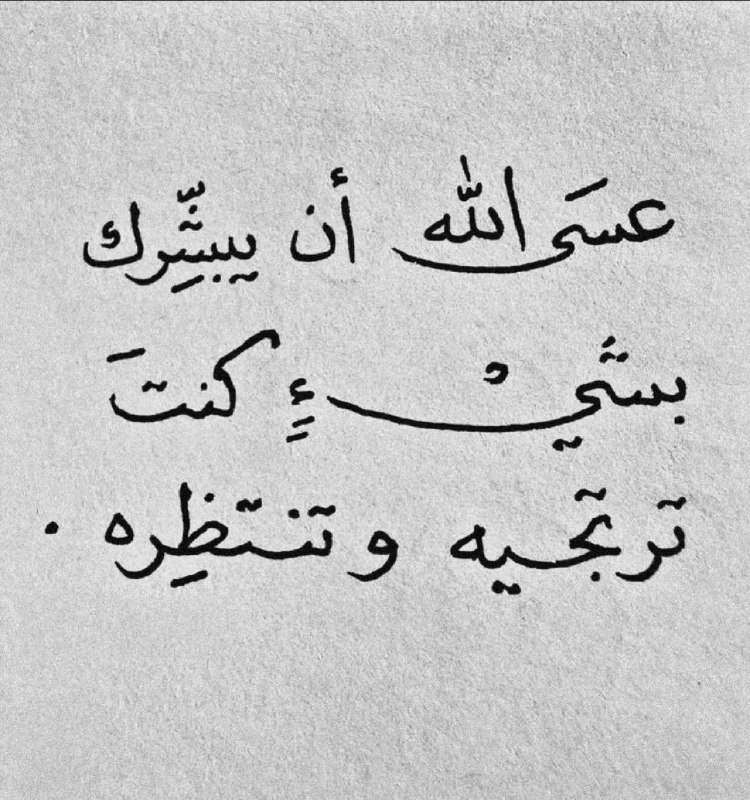 عسَى الله أن يبشِّرك
بشَيْءٍ كنتَ
ترتجيه وتنتظِره .